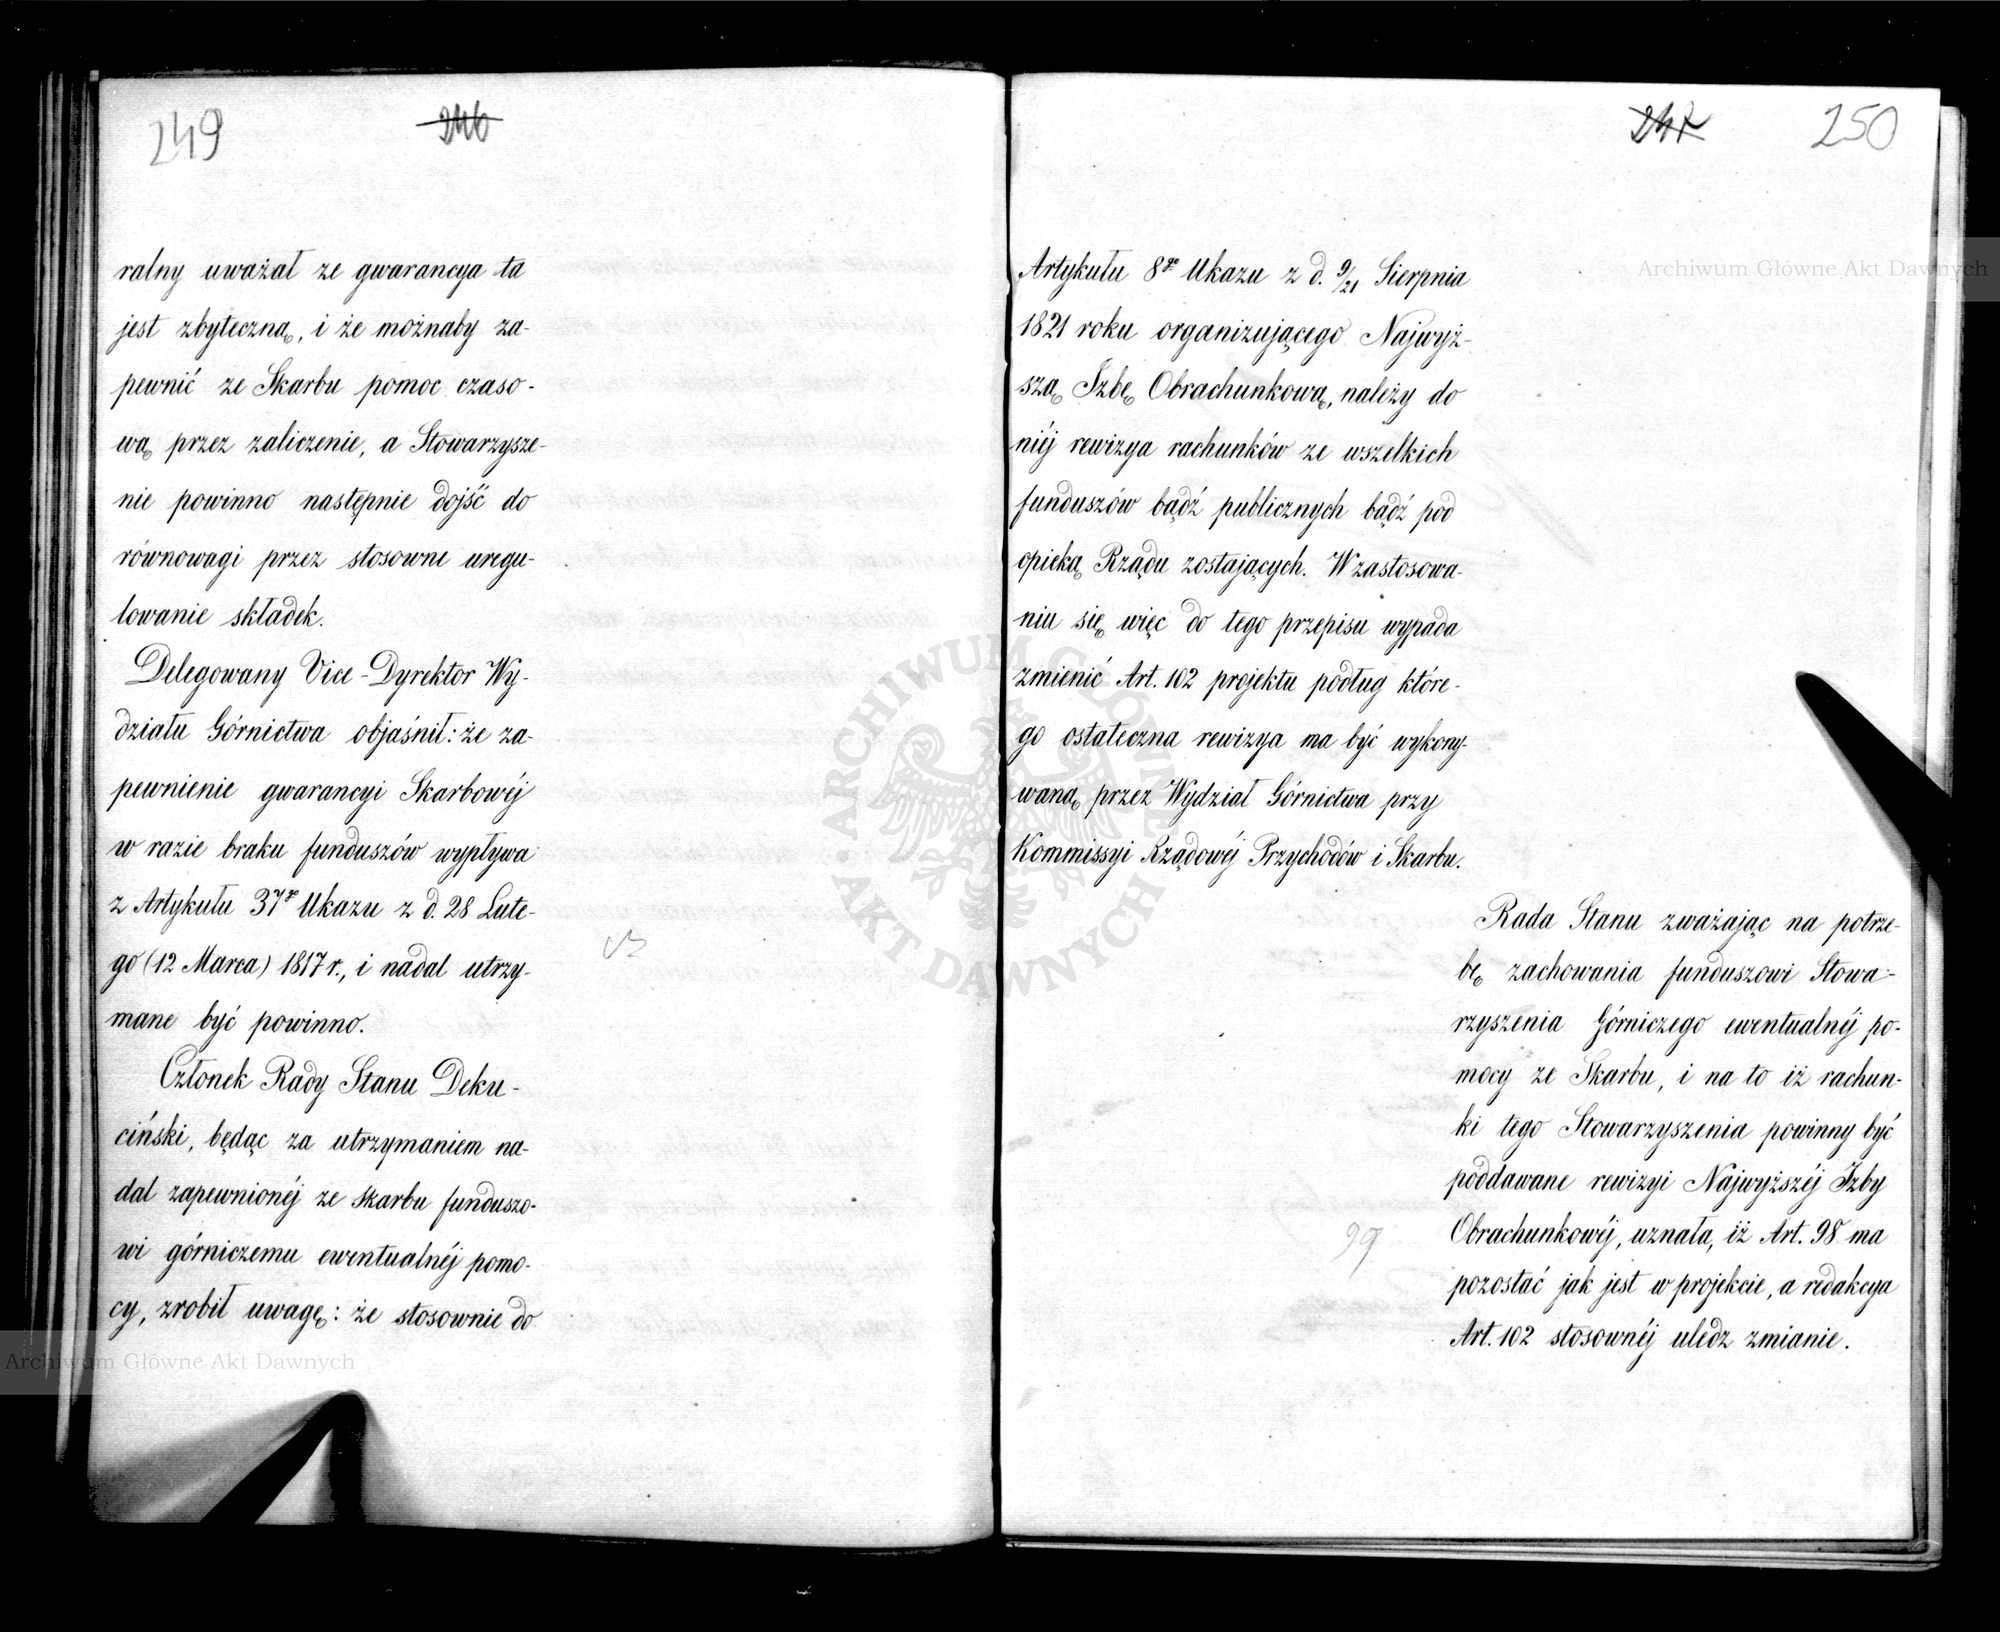 249
246
ralny uważał ze gwarancya ta
jest zbyteczną, i że możnaby za-
pewnić ze Skarbu pomoc czaso-
wą przez zaliczenie, a Stowarzysze-
nie powinno następnie dojść do
równowagi przez stosowne uregu-
lowanie składek.
Delegowany Vice-Dyrektor Wy-
działu Górnictwa objaśnił: że za-
pewnienie gwarancyi Skarbowéj
w razie braku funduszów wypływa
z Artykułu 37go Ukazu z d. 28 Lute-
go (12 Marca) 1817 r., i nadal utrzy-
mane być powinno.
Członek Rady Stanu Deku-
ciński, będąc za utrzymaniem na-
dal zapewnionéj ze Skarbu funduszo-
wi górniczemu ewentualnéj pomo-
cy, zrobił uwagę: że stosownie do
247
250
Artykułu 8go Ukazu z d. 9/21 Sierpnia
1821 roku organizującego Najwyż-
szą Izbę Obrachunkową, należy do
niéj rewizya rachunków ze wszelkich
funduszów bądź publicznych bądź pod
opieką Rządu zostających. W zastosowa-
niu się więc do tego przepisu wypada
zmienić Art. 102 projektu podług które-
go ostateczna rewizya ma być wykony-
waną przez Wydział Górnictwa przy
Kommissyi Rządowéj Przychodów i Skarbu.
Rada Stanu zważając na potrze-
bę zachowania funduszowi Stowa-
rzyszenia Górniczego ewentualnéj po-
mocy ze Skarbu, i na to iż rachun-
ki tego Stowarzyszenia powinny być
poddawane rewizyi Najwyższéj Izby
Obrachunkowéj, uznała, iż Art. 98 ma
pozostać jak jest w projekcie, a redakcya
Art. 102 stosownéj uledz zmianie.
Archiwum Główne Akt Dawnych
Archiwum Główne Akt Dawnych
ARCHIWUM GŁÓWNE AKT DAWNYCH